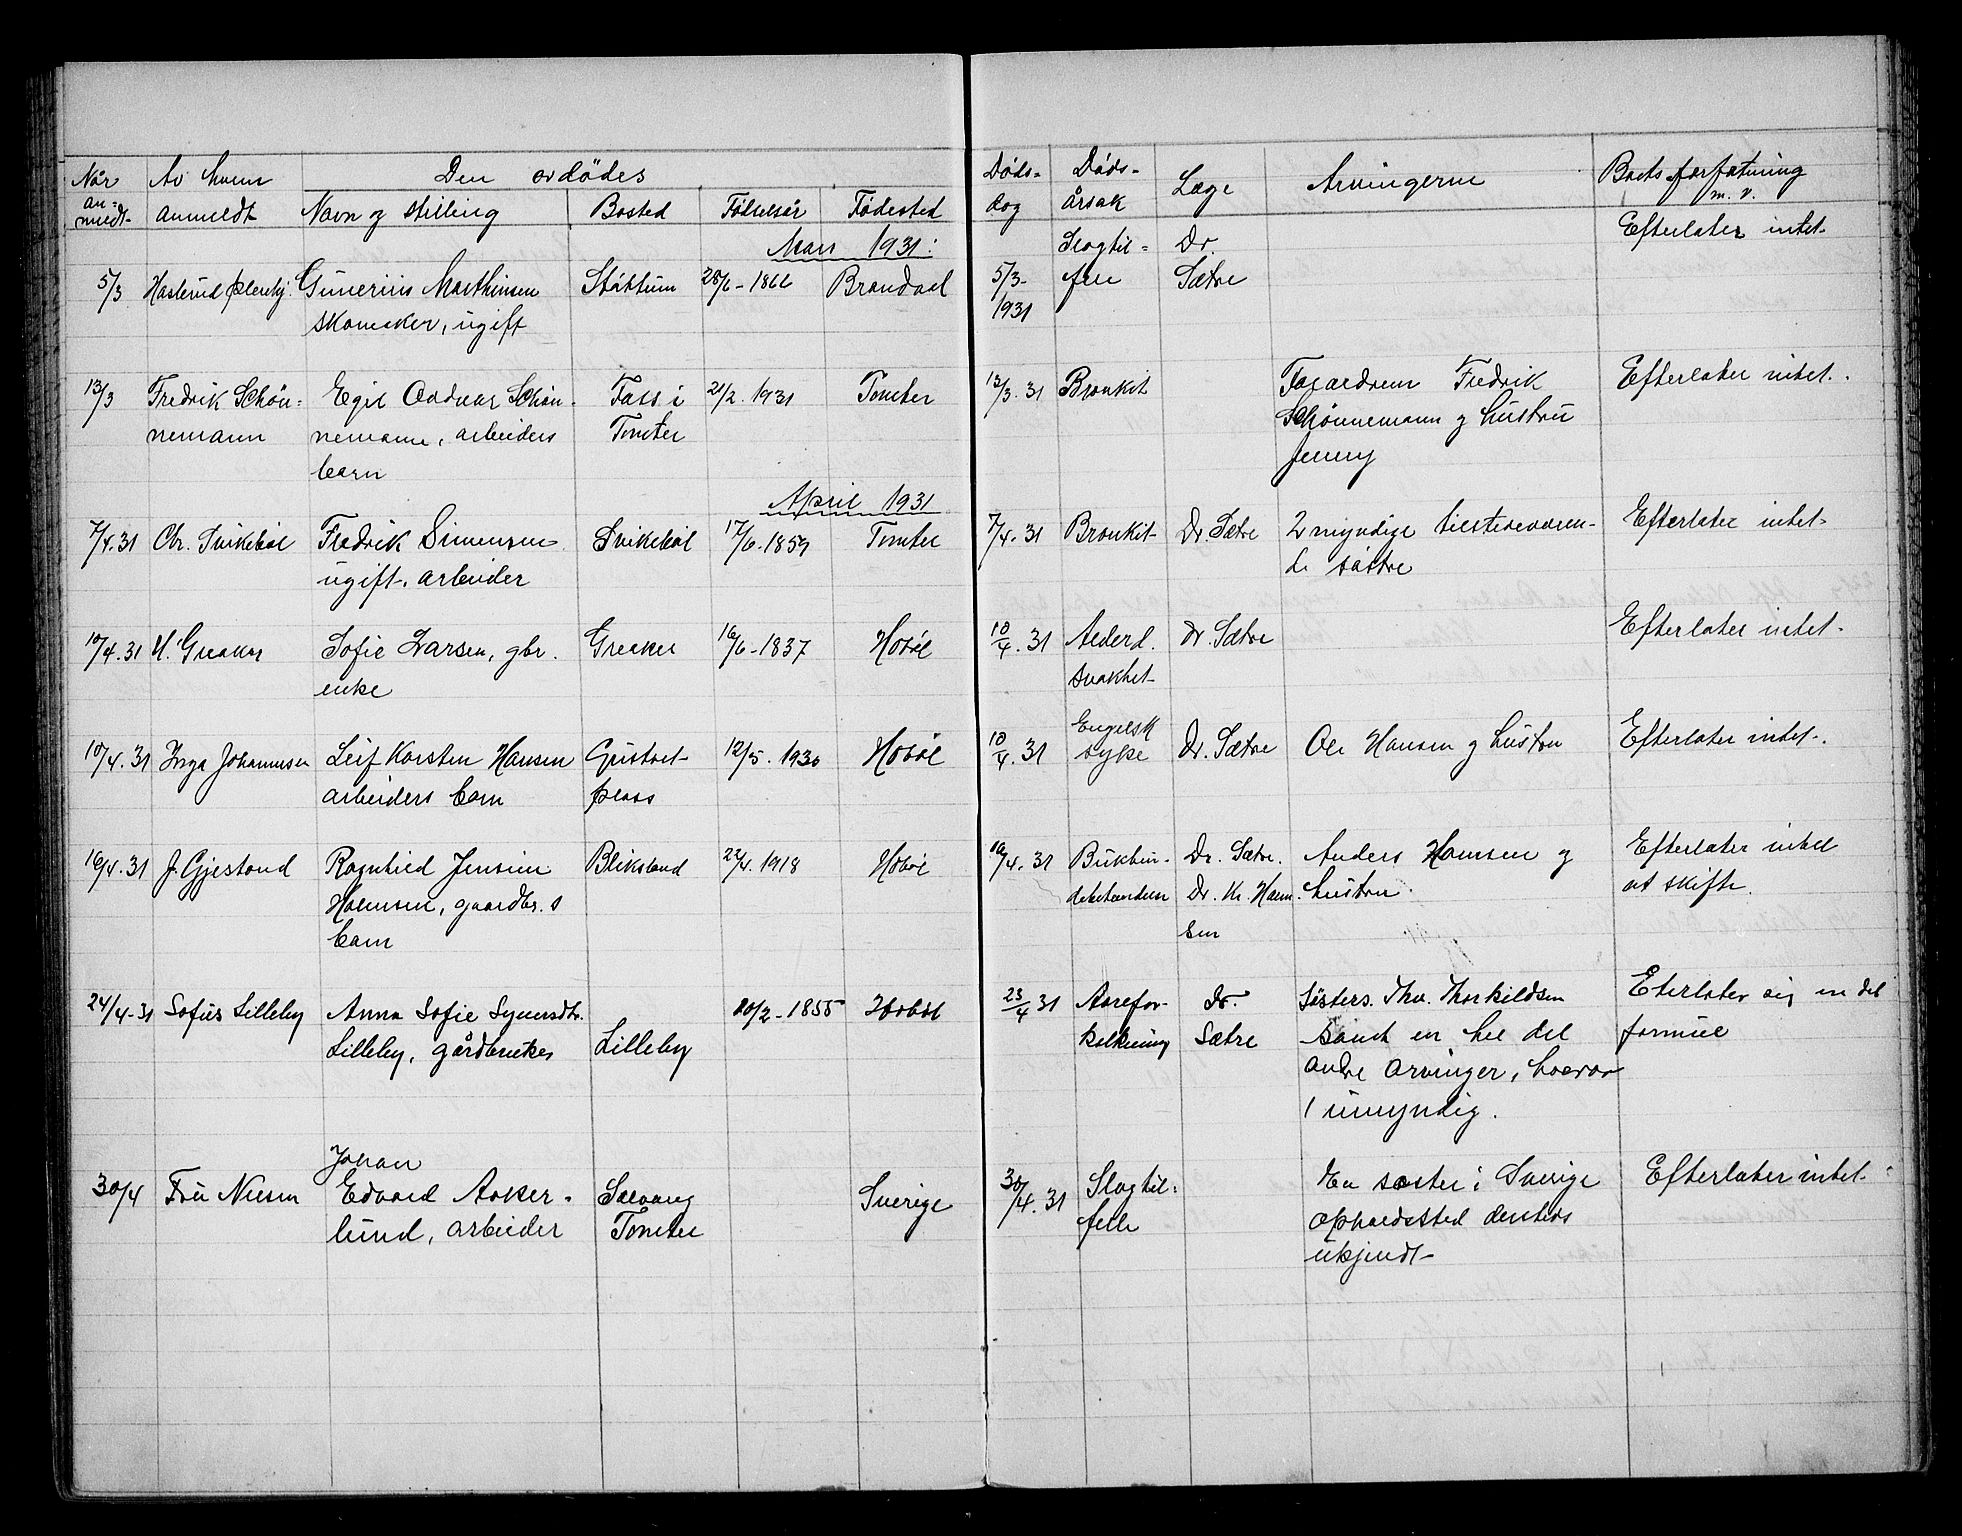 Når an-meldt Av hvem anmeldt Den avdødes Døds-dag Døds-årsak Læge Arvingerne Boets forfatning m. v.
Navn og stilling Bosted Fødselsår Fødested
Mars 1931:
Slagtil- Dr. Efterlater intet
5/3 Haslerud pleiehj. Gunerius Marthinsen Støttum 28/6-1862 Brandval 5/3- felle Sætre
skomaker, ugift 1931
13/3 Fredrik Schøn- Egil Oddvar Schøn- Foss i 21/2. 1931 Tomter 13/3. 31 Bronkit Fredrik Efterlater intet.
nemann nemann, arbeiders Tomter Schønnemann og hustru
barn Jenny
April 1931
7/4.31 Chr. Svikebøl Fredrik Simensen Svikebøl 17/6.1859 Tomter 7/4.31 Bronkit Dr. Sætre 2 myndige tilstedeværen- Efterlater intet
ugift, arbeider de søstre
10/4.31 H. Greaker Sofie Larsen, gbr. Greaker 16/6-1837 Hobøl 10/4.31 Alderd. Dr Sætre Efterlater intet
enke svakhet
Engelsk
10/4.31 Inga Johannesen Leif Karsten Hansen Gustoel- 12/5. 1930 Hobøl 10/4.31 syke Dr. Sætre Ole Hansen og hustru Efterlater intet.
arbeiders barn plass
16/4.31 J. Gjestand Ragnhild Jensine Bliksland 22/4.1918 Hobøl 16/4.31 Bukhin- Dr. Sætre. Anders Hansen og Efterlater intet
gaardbr.s debetændelse Dr. Kr. hustru at skifte.
barn sen
24/4-31 Sofus Lilleby Anna Sofie Syversdtr. 20/2-1855 Hobøl 23/4 31 Aarefor- Dr. Søsters. Thv. Thorkildsen Eterlater sig en del
Lilleby, gårdbruker Lilleby kalkning Sætre samt en hel del formue
andre arvinger, hvorav
1 umyndig.
Johan
30/4 Fru Nilsen Edvard Aaker- Solvang Sverige 30/4.31 Slagtil- En søster i Sverige Efterlater intet
lund, arbeider Tomter felle opholdssted dersteds
ukjendt